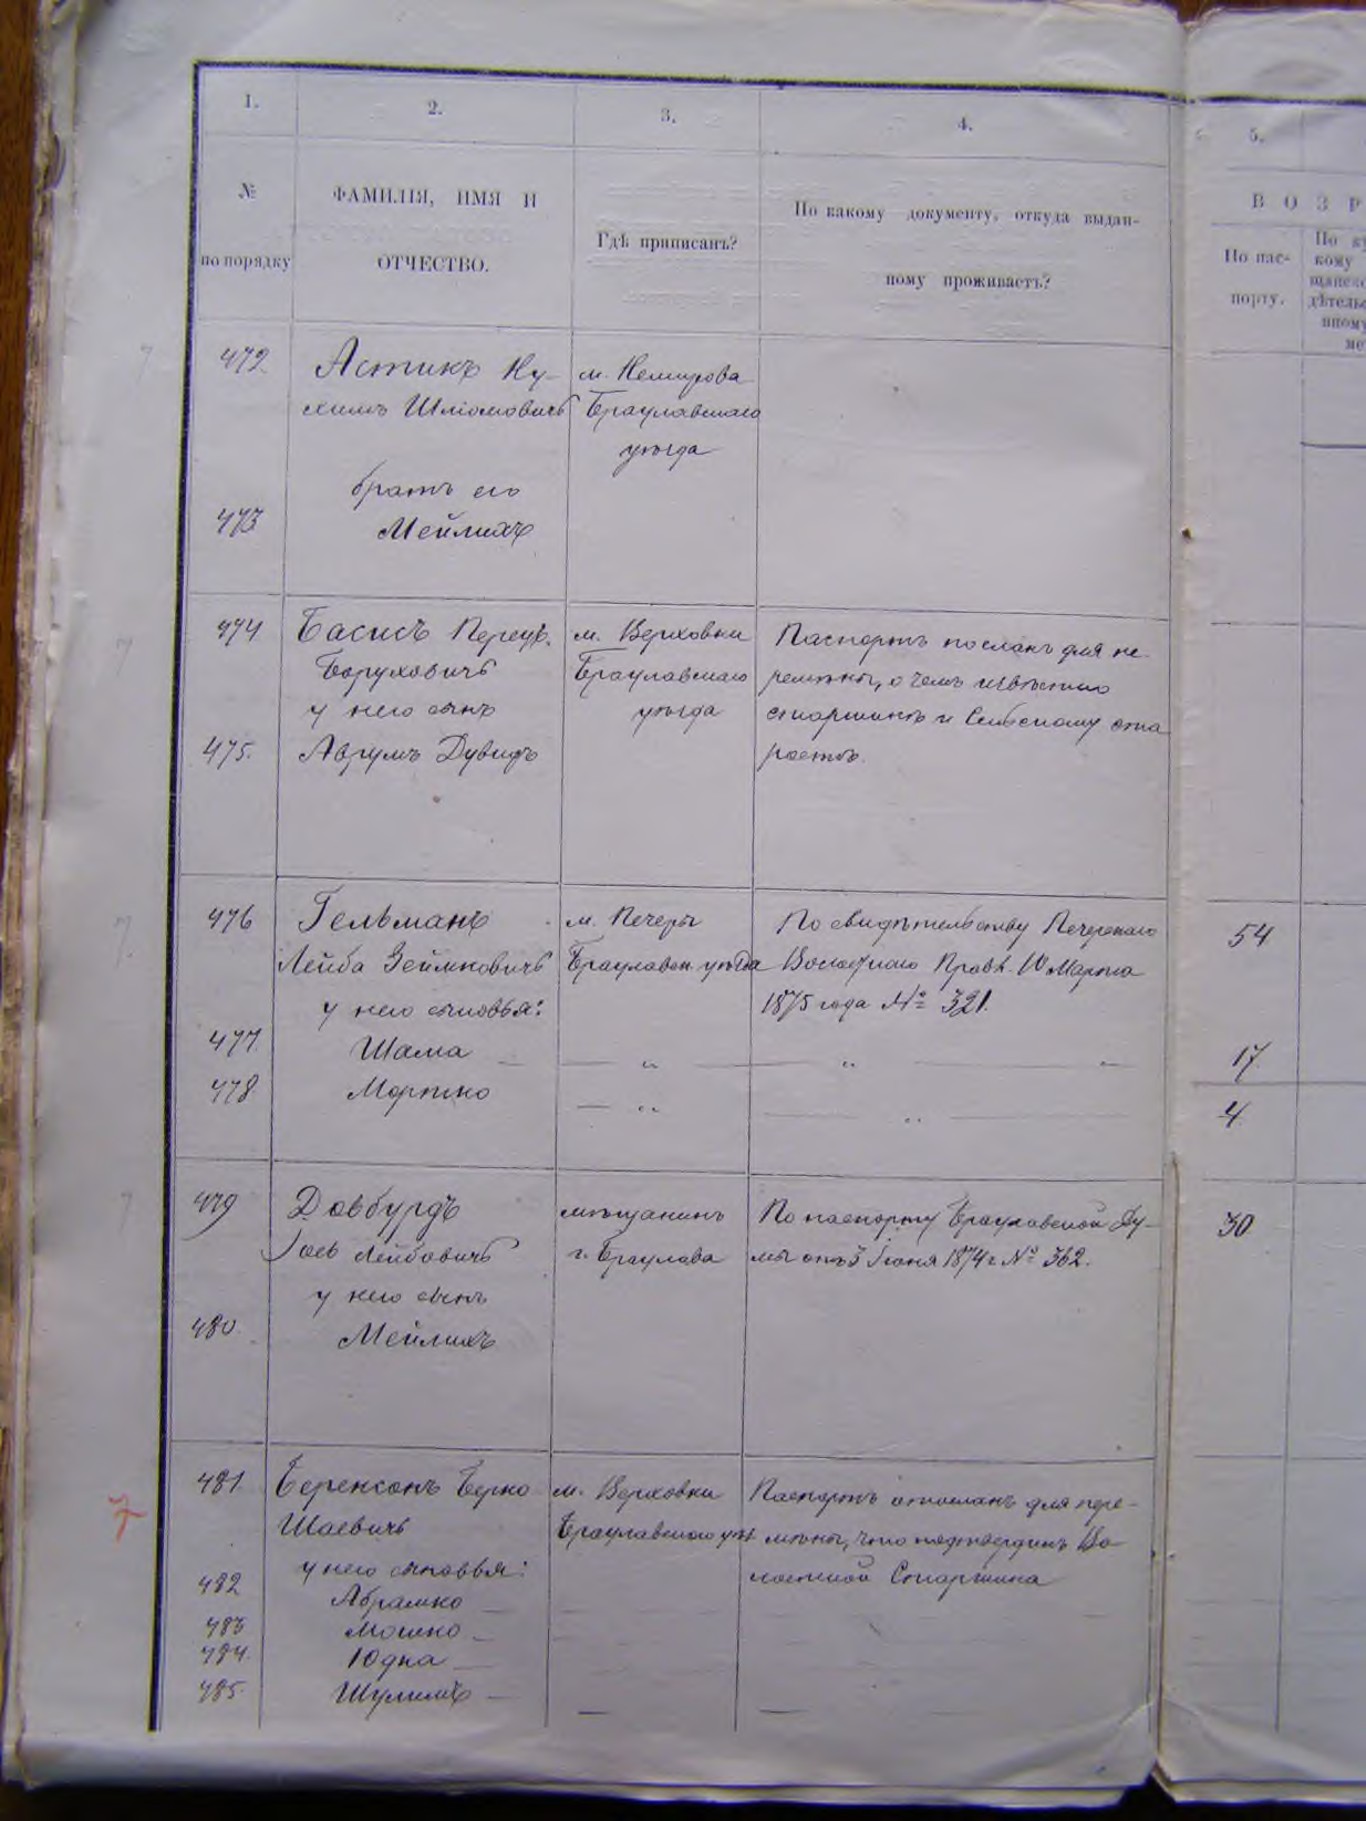 1.
2.
3.
4.
5.
№
по порядку
ФАМИЛІЯ, ИМЯ И
ОТЧЕСТВО.
Гдѣ приписанъ?
По какому документу, откуда выдан-
ному проживаетъ?
ВОЗР
По пас-
порту.
472
Астикъ Ну-
химъ Шліомовичъ
м. Немирова
Брацлавскаго
уѣзда
473
братъ его
Мейлихъ
474
Басисъ
Боруховичъ
у него сынъ
м. Верховки
Брацлавскаго
уѣзда
Паспортъ посланъ для пе-
ремѣны, о чемъ извѣстно
старшинѣ и Сельскому ста
ростѣ.
475.
Аврумъ Дувидъ
476
Гельманъ
Лейба Зейликовичъ
у него сыновья:
м. Печеры
Брацлавск. уѣзда
По свидѣтельству Печерскаго
Волостнаго Правл. 10 Марта
1875 года № 321.
54
477
Шама
"
"
17.
478
Мортко
"
"
4
479
Довбурдъ
Іось Лейбовичъ
у него сынъ
мѣщанинъ
г. Брацлава
По паспорту Брацлавской Ду-
мы отъ 3 Іюня 1874 г № 362.
30
480
Мейлихъ
7
481
Беренсонъ Берко
Шаевичъ
у него сыновья:
м. Верховки
Брацлавскаго уѣз
Паспортъ отосланъ для пере-
мѣны, что подтвердилъ Во-
лостной Старшина
482
Абрамко
483
Мошко
484.
Юдка
485
Шулимъ